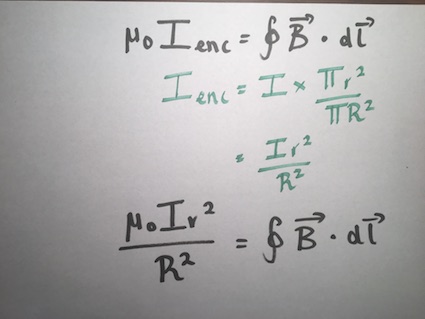 μ₀ I enc = ∮ B⃗ · dl⃗
I enc = I × πr²/πR²
= Ir²/R²
μ₀Ir²/R² = ∮ B⃗ · dl⃗